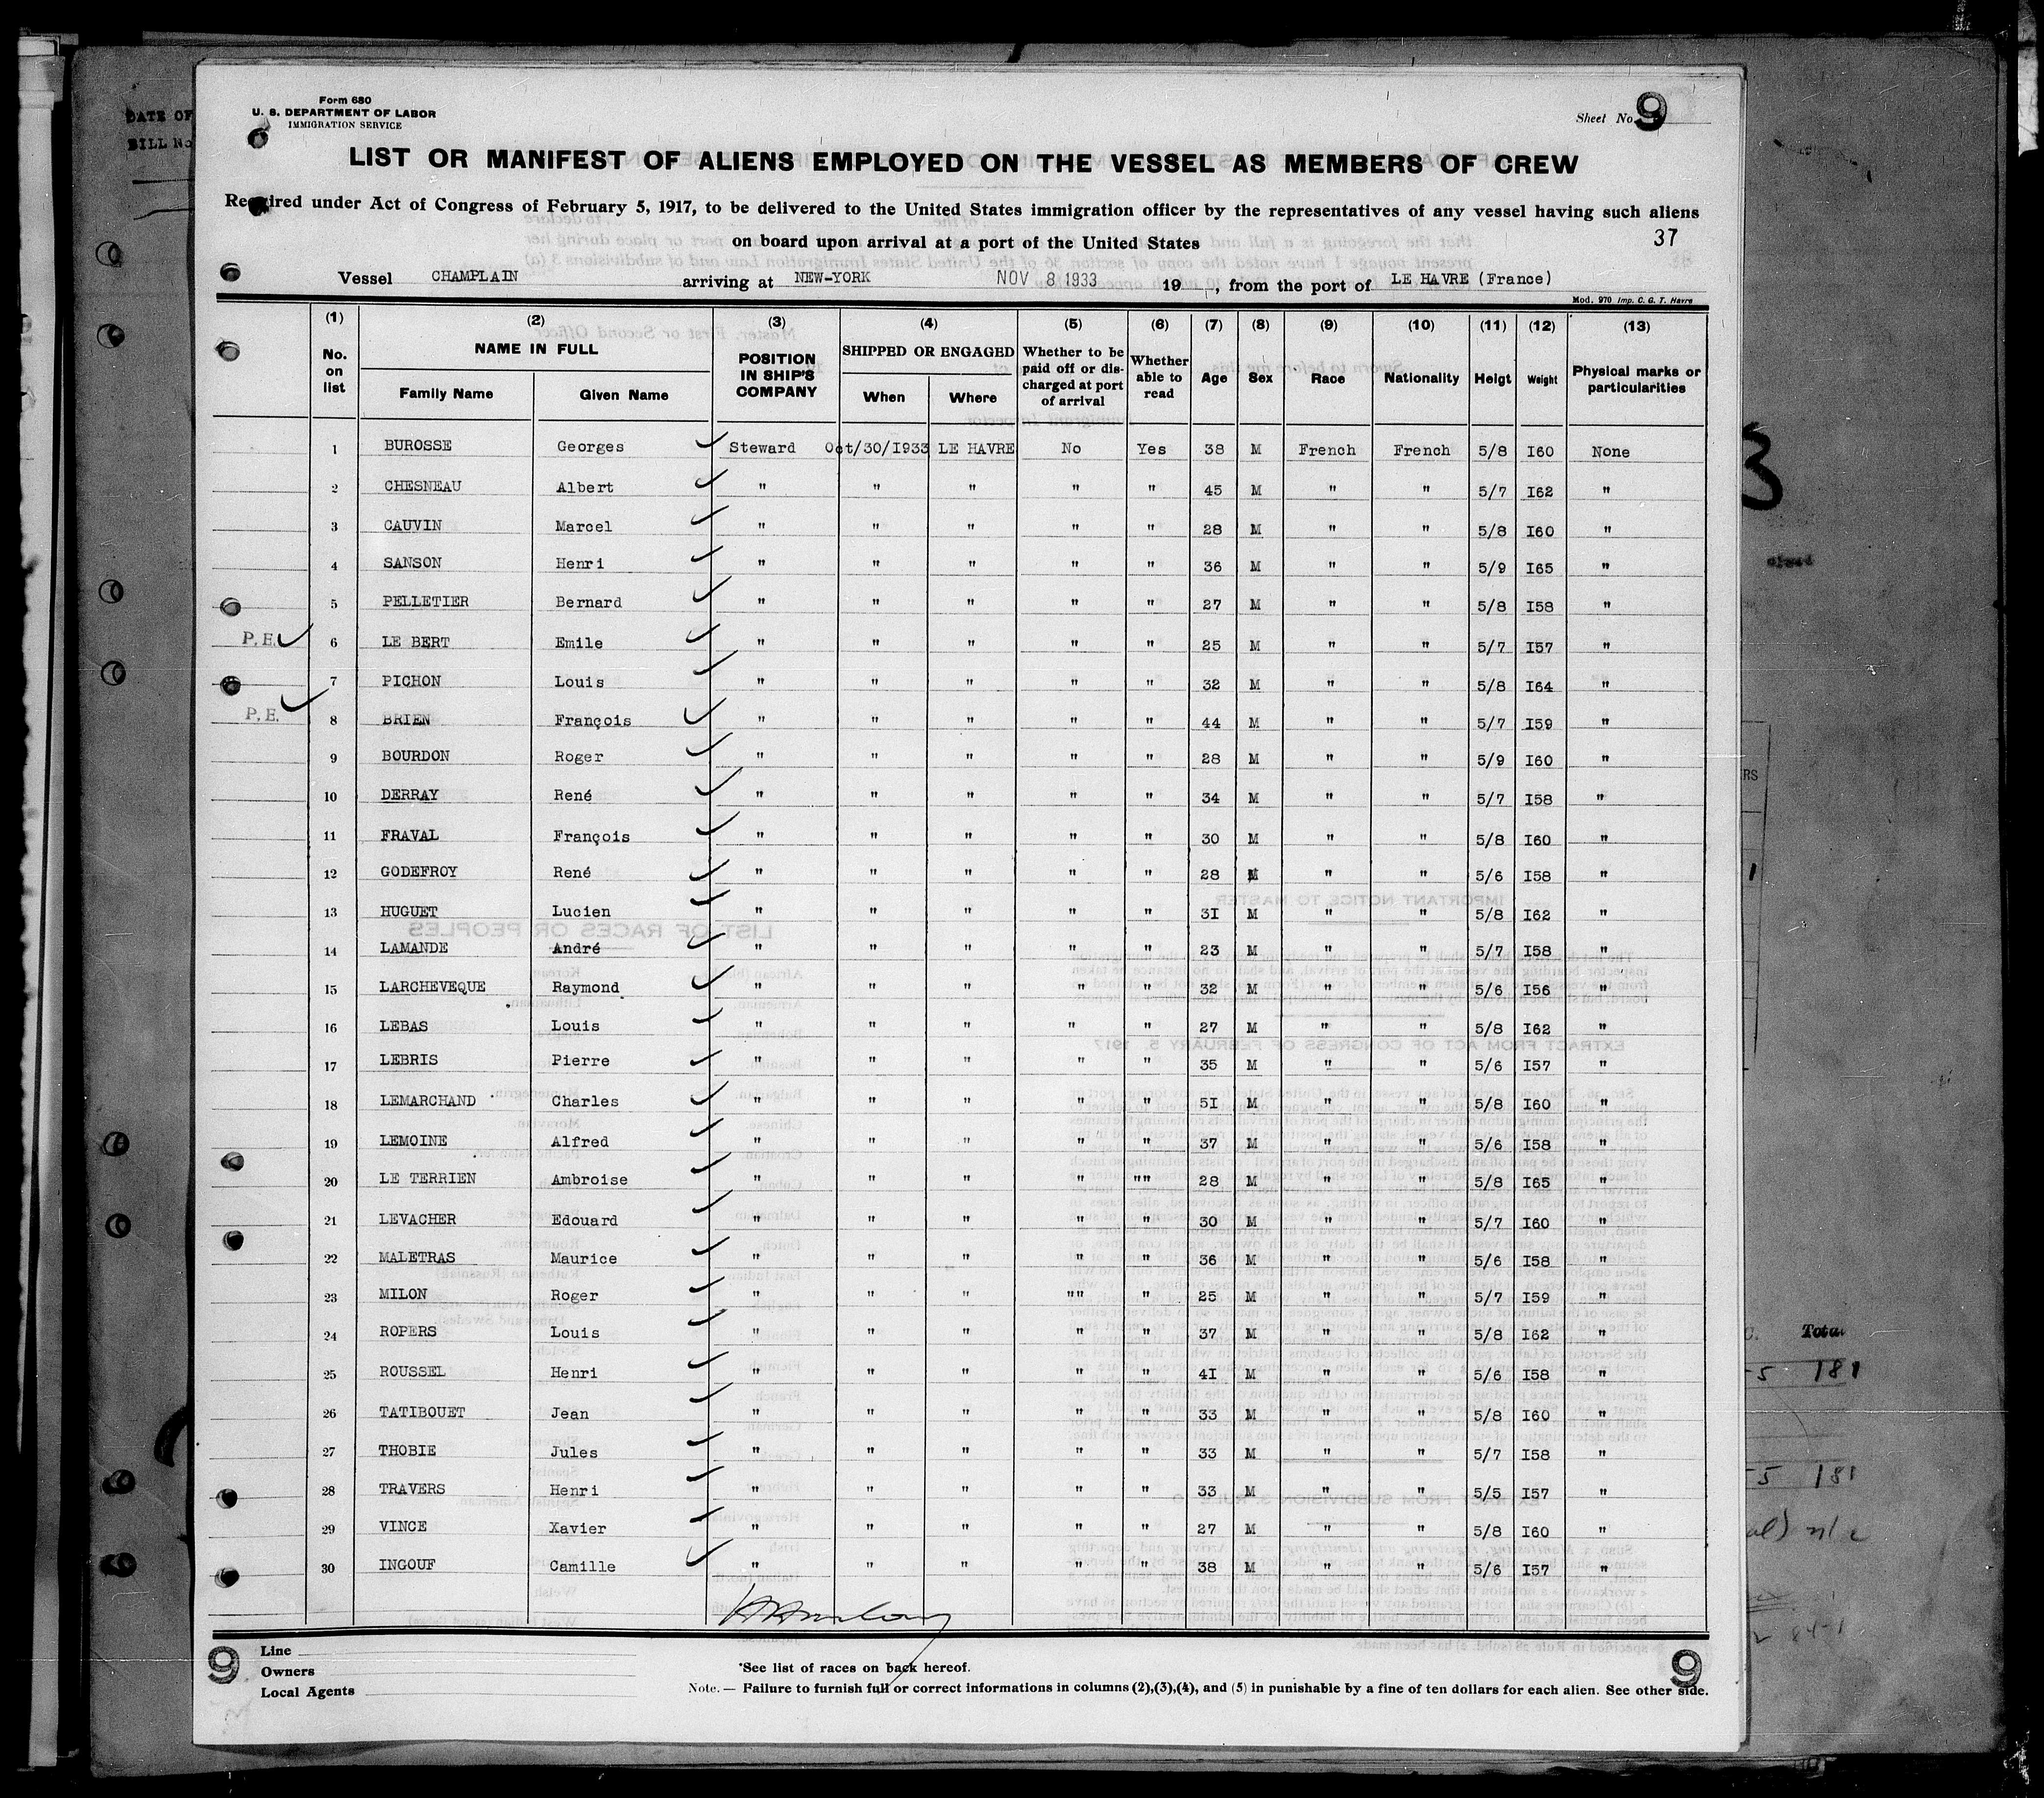 DATE OF
BILL No
Form 680
U. S. DEPARTMENT OF LABOR
IMMIGRATION SERVICE
Sheet No. 9
LIST OR MANIFEST OF ALIENS EMPLOYED ON THE VESSEL AS MEMBERS OF CREW
Required under Act of Congress of February 5, 1917, to be delivered to the United States immigration officer by the representatives of any vessel having such aliens
on board upon arrival at a port of the United States
37
Vessel CHAMPLAIN arriving at NEW-YORK NOV 8 1933 19 , from the port of LE HAVRE (France)
Mod. 970 Imp. C. G. T. Havre
(1) (2) (3) (4) (5) (6) (7) (8) (9) (10) (11) (12) (13)
No. on list NAME IN FULL Family Name Given Name POSITION IN SHIP'S COMPANY SHIPPED OR ENGAGED When Where Whether to be paid off or discharged at port of arrival Whether able to read Age Sex Race Nationality Heigt Weight Physical marks or particularities
1 BUROSSE Georges Steward Oct/30/I933 LE HAVRE No Yes 38 M French French 5/8 I60 None
2 CHESNEAU Albert " " " " " 45 M " " 5/7 I62 "
3 CAUVIN Marcel " " " " " 28 M " " 5/8 I60 "
4 SANSON Henri " " " " " 36 M " " 5/9 I65 "
5 PELLETIER Bernard " " " " " 27 M " " 5/8 I58 "
P.E. 6 LE BERT Emile " " " " " 25 M " " 5/7 I57 "
7 PICHON Louis " " " " " 32 M " " 5/8 I64 "
P.E. 8 BRIEN François " " " " " 44 M " " 5/7 I59 "
9 BOURDON Roger " " " " " 28 M " " 5/9 I60 "
10 DERRAY René " " " " " 34 M " " 5/7 I58 "
11 FRAVAL François " " " " " 30 M " " 5/8 I60 "
12 GODEFROY René " " " " " 28 M " " 5/6 I58 "
13 HUGUET Lucien " " " " " 3I M " " 5/8 I62 "
14 LAMANDE André " " " " " 23 M " " 5/7 I58 "
15 LARCHEVEQUE Raymond " " " " " 32 M " " 5/6 I56 "
16 LEBAS Louis " " " " " 27 M " " 5/8 I62 "
17 LEBRIS Pierre " " " " " 35 M " " 5/6 I57 "
18 LEMARCHAND Charles " " " " " 5I M " " 5/8 I60 "
19 LEMOINE Alfred " " " " " 37 M " " 5/6 I58 "
20 LE TERRIEN Ambroise " " " " "" 28 M " " 5/8 I65 "
21 LEVACHER Edouard " " " " " 30 M " " 5/7 I60 "
22 MALETRAS Maurice " " " " " 36 M " " 5/6 I58 "
23 MILON Roger " " " "" " 25 M " " 5/7 I59 "
24 ROPERS Louis " " " " " 37 M " " 5/8 I62 "
25 ROUSSEL Henri " " " " " 4I M " " 5/6 I58 "
26 TATIBOUET Jean " " " " " 33 M " " 5/8 I60 "
27 THOBIE Jules " " " " " 33 M " " 5/7 I58 "
28 TRAVERS Henri " " " " " 33 M " " 5/5 I57 "
29 VINCE Xavier " " " " " 27 M " " 5/8 I60 "
30 INGOUF Camille " " " " " 38 M " " 5/6 I57 "
9 Line
Owners
Local Agents
*See list of races on back hereof.
9
Note. — Failure to furnish full or correct informations in columns (2),(3),(4), and (5) in punishable by a fine of ten dollars for each alien. See other side.
3
RS
181
181